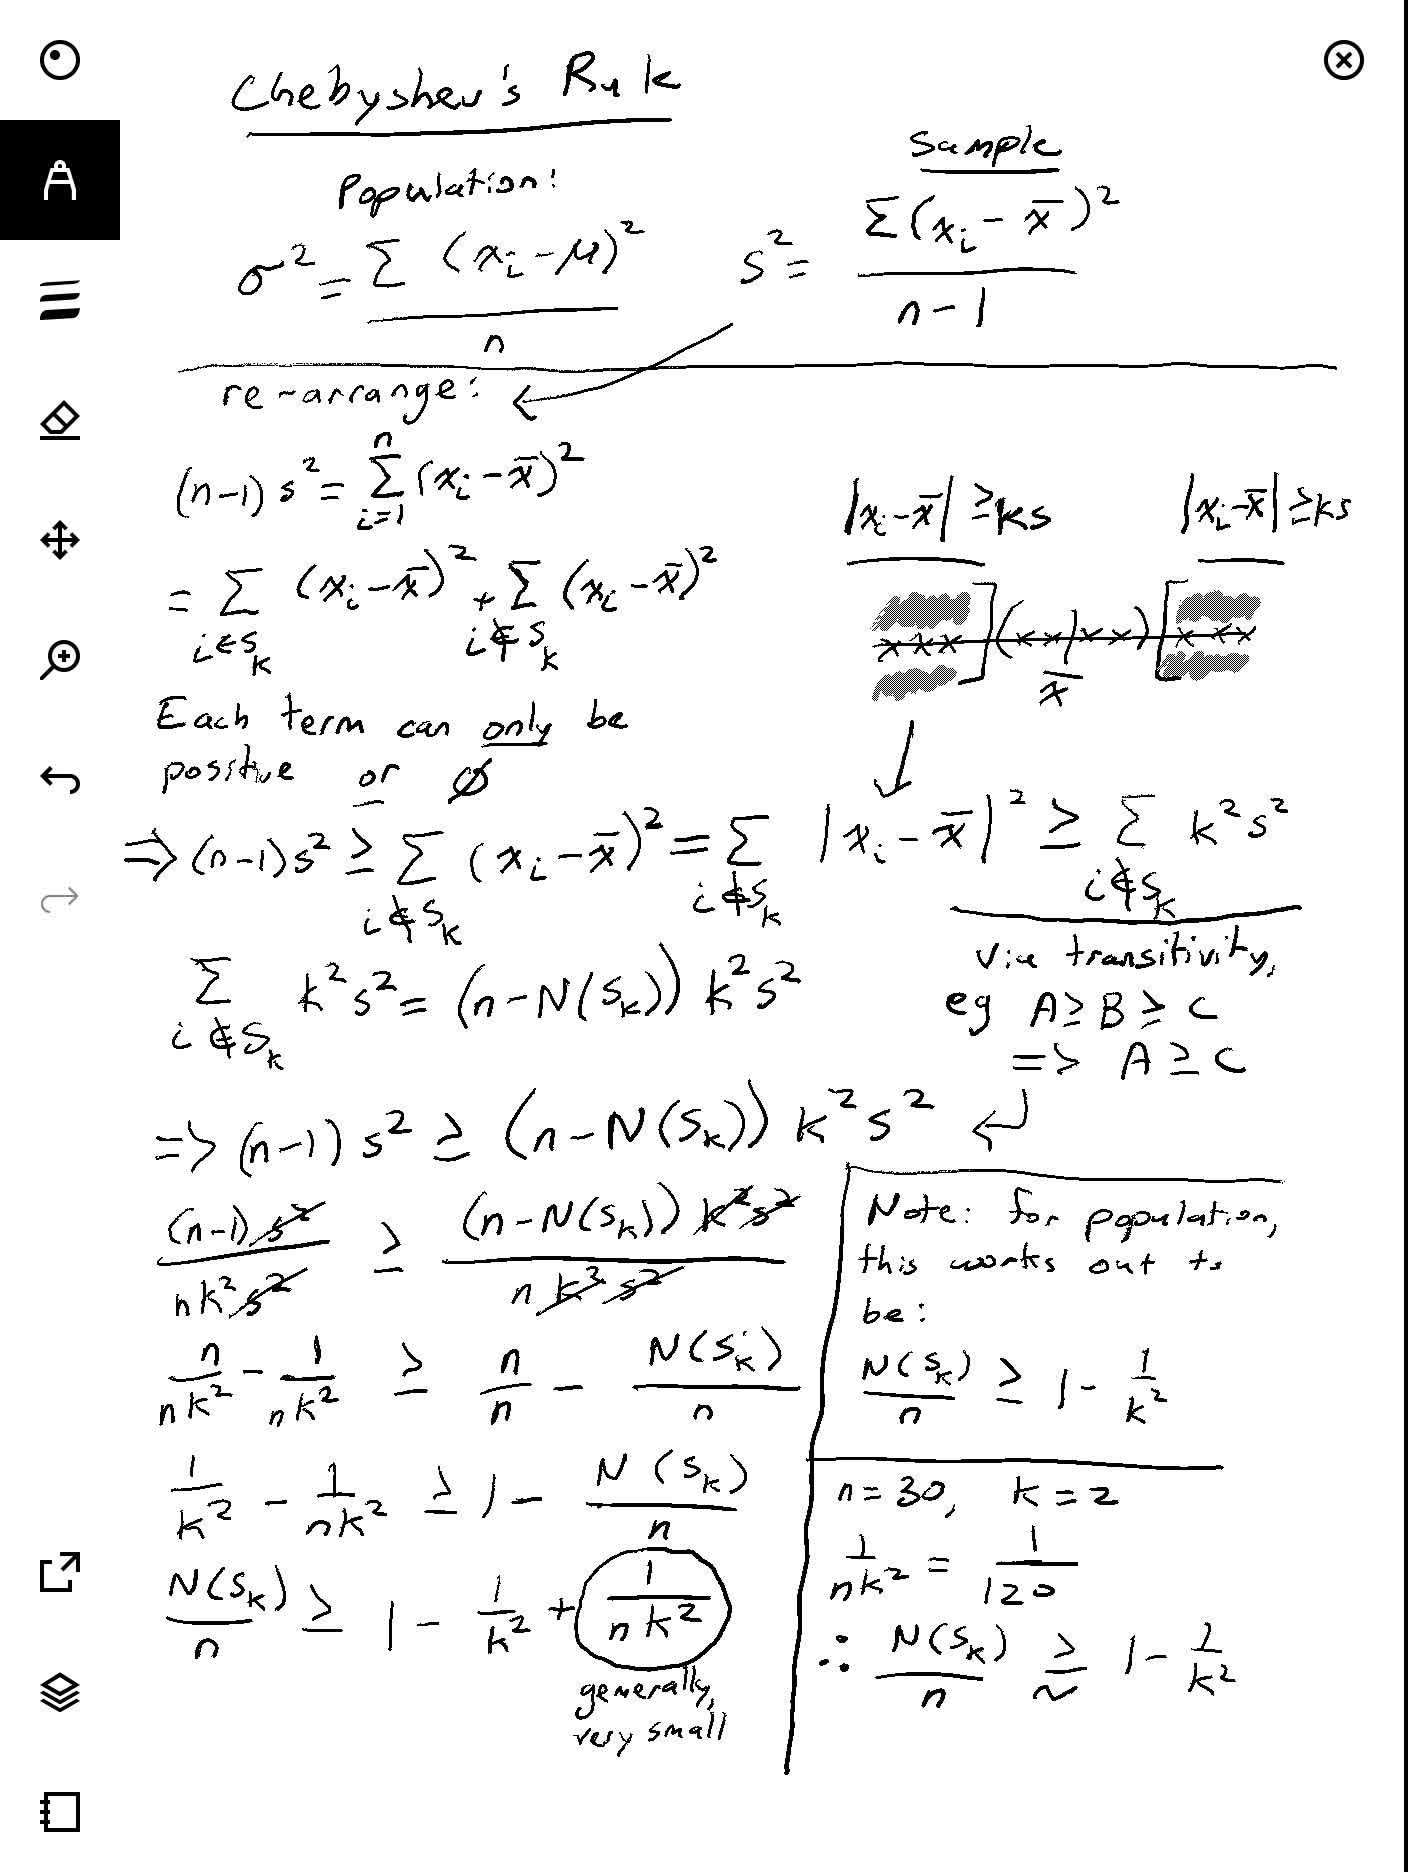 Chebyshev's Rule
Population:
σ² = Σ (xᵢ - μ)² / n
Sample
s² = Σ(xᵢ - x̄)² / n - 1
re-arrange:
(n-1) s² = Σⁿᵢ₌₁ (xᵢ - x̄)²
= Σ i∈Sₖ (xᵢ - x̄)² + Σ i∉Sₖ (xᵢ - x̄)²
|xᵢ - x̄| ≥ ks |xᵢ - x̄| ≥ ks
x x x ] ( x x | x x ) [ x x x
x̄
Each term can only be
positive or ∅
⇒ (n-1)s² ≥ Σ i∉Sₖ (xᵢ - x̄)² = Σ i∉Sₖ |xᵢ - x̄|² ≥ Σ i∉Sₖ k²s²
Σ i∉Sₖ k²s² = (n - N(Sₖ)) k²s²
via transitivity,
eg A ≥ B ≥ C
=> A ≥ C
=> (n-1) s² ≥ (n - N(Sₖ)) k² s²
(n-1) s² / nk² s² ≥ (n - N(Sₖ)) k² s² / n k² s²
n / nk² - 1 / nk² ≥ n / n - N(Sₖ) / n
1 / k² - 1 / nk² ≥ 1 - N(Sₖ) / n
N(Sₖ) / n ≥ 1 - 1 / k² + 1 / nk²
generally,
very small
Note: for population,
this works out to
be:
N(Sₖ) / n ≥ 1 - 1 / k²
n = 30, k = 2
1 / nk² = 1 / 120
∴ N(Sₖ) / n ≳ 1 - 1 / k²